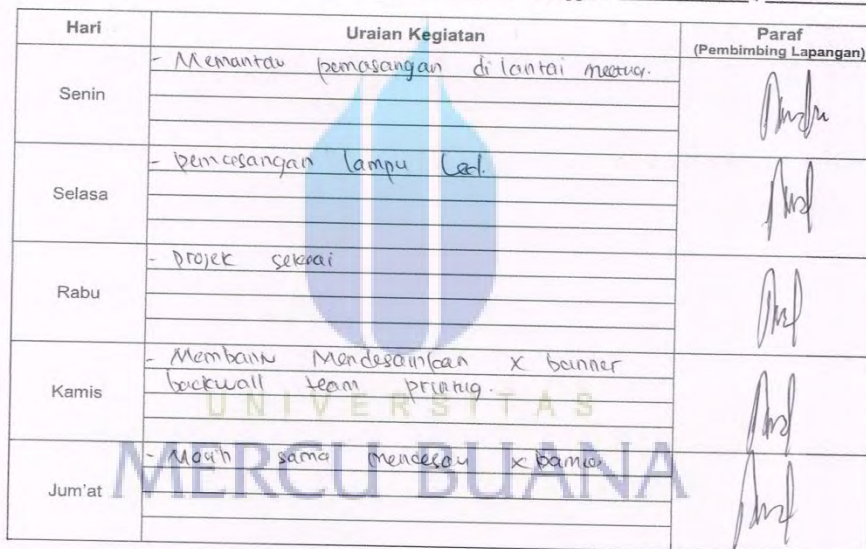 Hari Uraian Kegiatan Paraf
(Pembimbing Lapangan)
Senin
- Memantau pemasangan di lantai
Selasa
- pemasangan lampu Led.
Rabu
- projek selesai
Kamis
- Membantu Mendesainkan x banner
backwall team printing.
Jum'at
- Masih sama mendesain x banner
UNIVERSITAS
MERCU BUANA